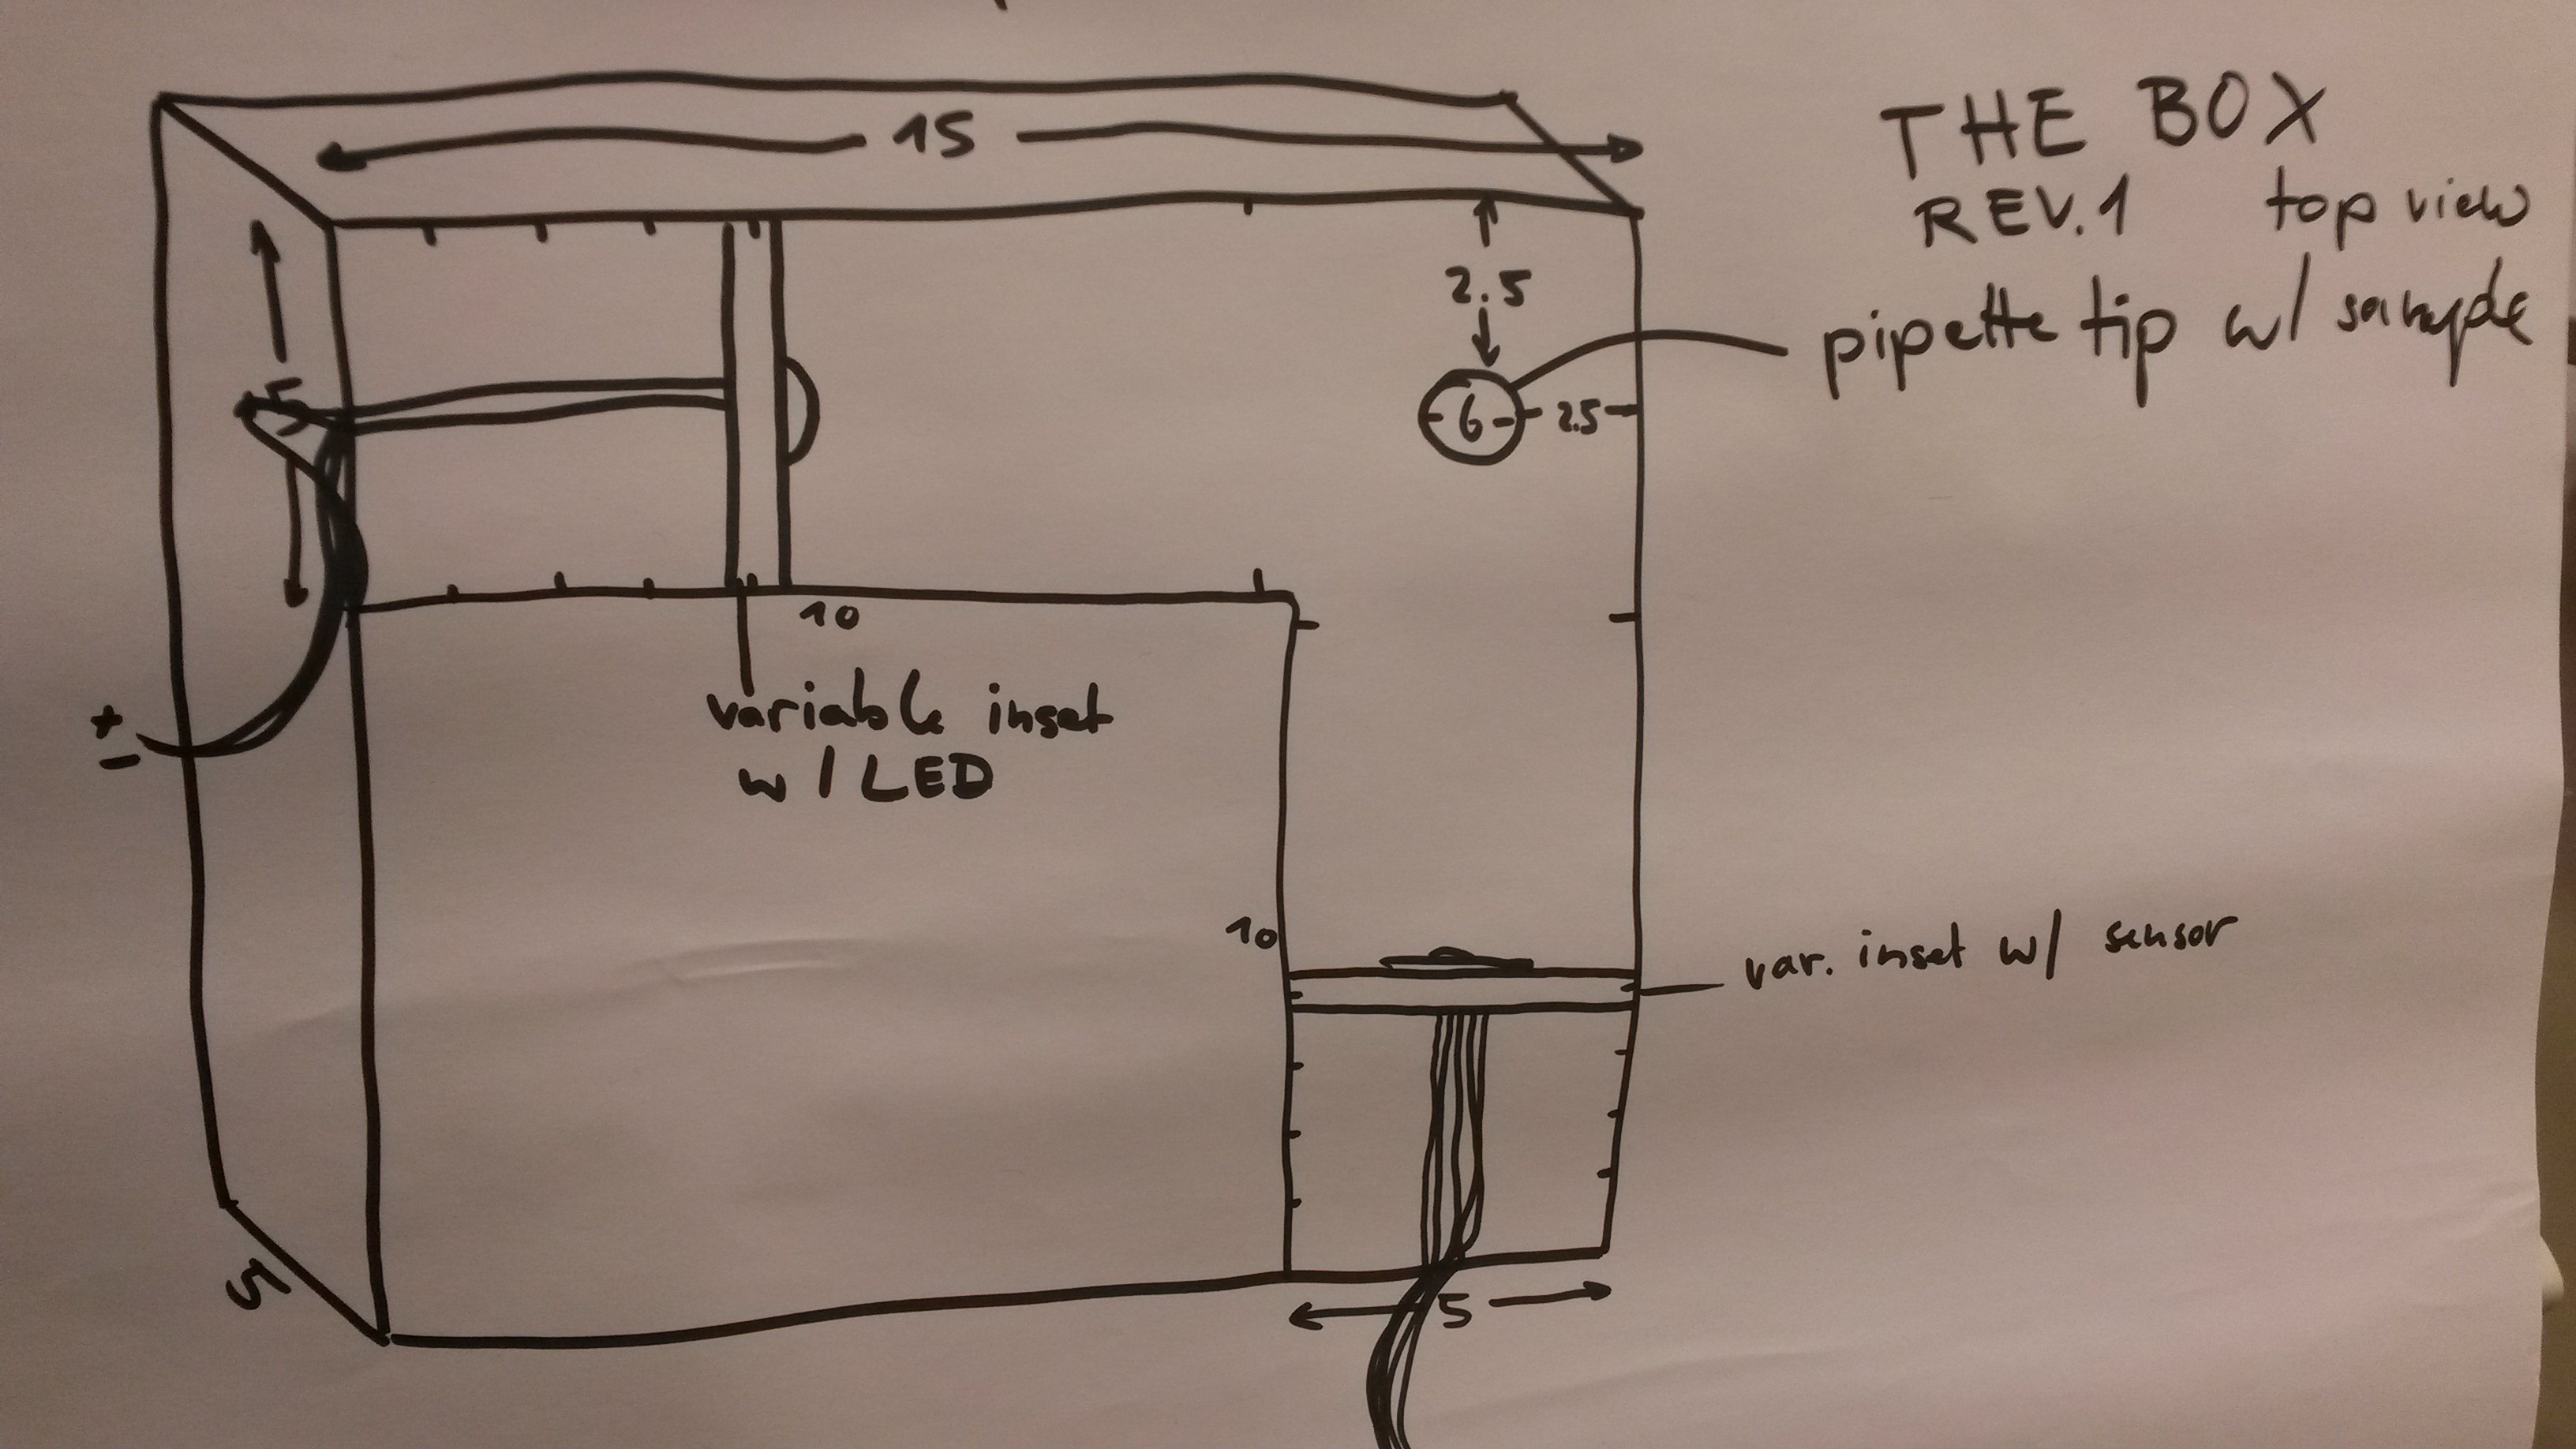 THE BOX
REV.1 top view
15
2.5
pipette tip w/ sample
5
6
2.5
10
variable inset
w/ LED
+
-
10
var. inset w/ sensor
5
5